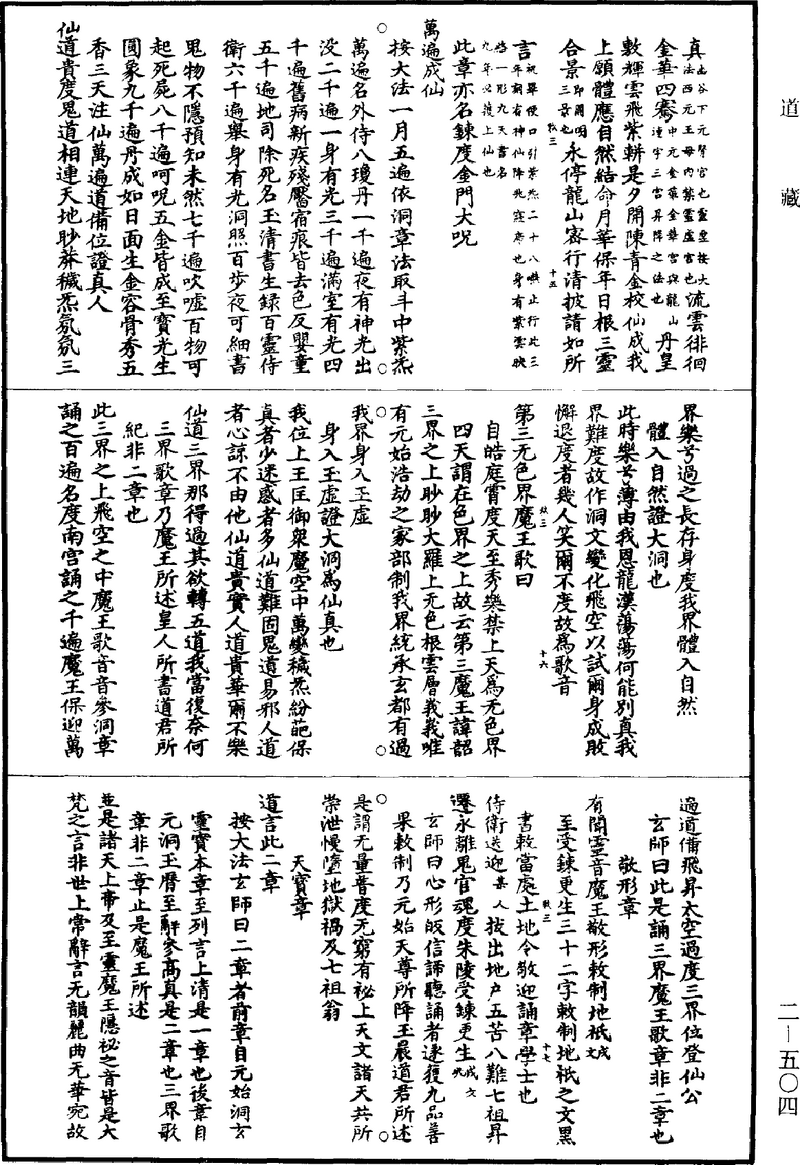 道藏
真
金華四騫
流雲徘徊
丹皇
敷輝雲飛紫輧是夕開陳青金校仙成我
上願體應自然結命月華保年日根三靈
合景
永停龍山密行清披請如所
言
此章亦名鍊度金門大呪
萬遍成仙
按大法一月五遍依洞章法取斗中紫炁
萬遍名外侍八瓊丹一千遍夜有神光出
没二千遍一身有光三千遍滿室有光四
千遍舊病新疾殘靨宿痕皆去色反嬰童
五千遍地司除死名玉清書生録百靈侍
衛六千遍舉身有光洞照百步夜可細書
鬼物不隱預知未然七千遍吹噓百物可
起死屍八千遍呵呪五金皆成至寶光生
圓象九千遍丹成如日面生金容骨秀五
香三天注仙萬遍道備位證真人
仙道貴度鬼道相連天地眇莽穢炁氛氛三
界樂兮過之長存身度我界體入自然
體入自然證大洞也
此時樂兮薄由我恩龍漢蕩蕩何能別真我
界難度故作洞文變化飛空以試爾身成敗
懈退度者幾人笑爾不度故爲歌音
十六
第三无色界魔王歌曰
自皓庭霄度天至秀樂禁上天爲无色界
四天謂在色界之上故云第三魔王諱韶
三界之上眇眇大羅上无色根雲層峩峩唯
有元始浩劫之家部制我界統承玄都有過
我界身入玉虛
身入玉虛證大洞爲仙真也
我位上王匡御衆魔空中萬變穢炁紛葩保
真者少迷惑者多仙道難固鬼道易邪人道
者心諒不由他仙道貴實人道貴華爾不樂
仙道三界那得過其欲轉五道我當復奈何
三界歌章乃魔王所述皇人所書道君所
紀非二章也
此三界之上飛空之中魔王歌音音參洞章
誦之百遍名度南宮誦之千遍魔王保迎萬
遍道備飛昇太空過度三界位登仙公
玄師曰此是誦三界魔王歌章非二章也
敬形章
有聞靈音魔王敬形敕制地祇
至受鍊更生三十二字敕制地祇之文黑
書敕當處土地令敬迎誦章學士也
十七
侍衛送迎某人拔出地户五苦八難七祖昇
遷永離鬼官魂度朱陵受鍊更生
玄師曰心形皈信諦聽誦者遂獲九品善
果敕制乃元始天尊所降玉晨道君所述
是謂无量普度无窮有祕上天文諸天共所
崇泄慢墮地獄禍及七祖翁
天寶章
道言此二章
按大法玄師曰二章者前章自元始洞玄
靈寶本章至列言上清是一章也後章自
元洞玉曆至辭參高真是二章也三界歌
章非二章止是魔王所述
並是諸天上帝及至靈魔王隱祕之音皆是大
梵之言非世上常辭言无韻麗曲无華宛故
二—五〇四